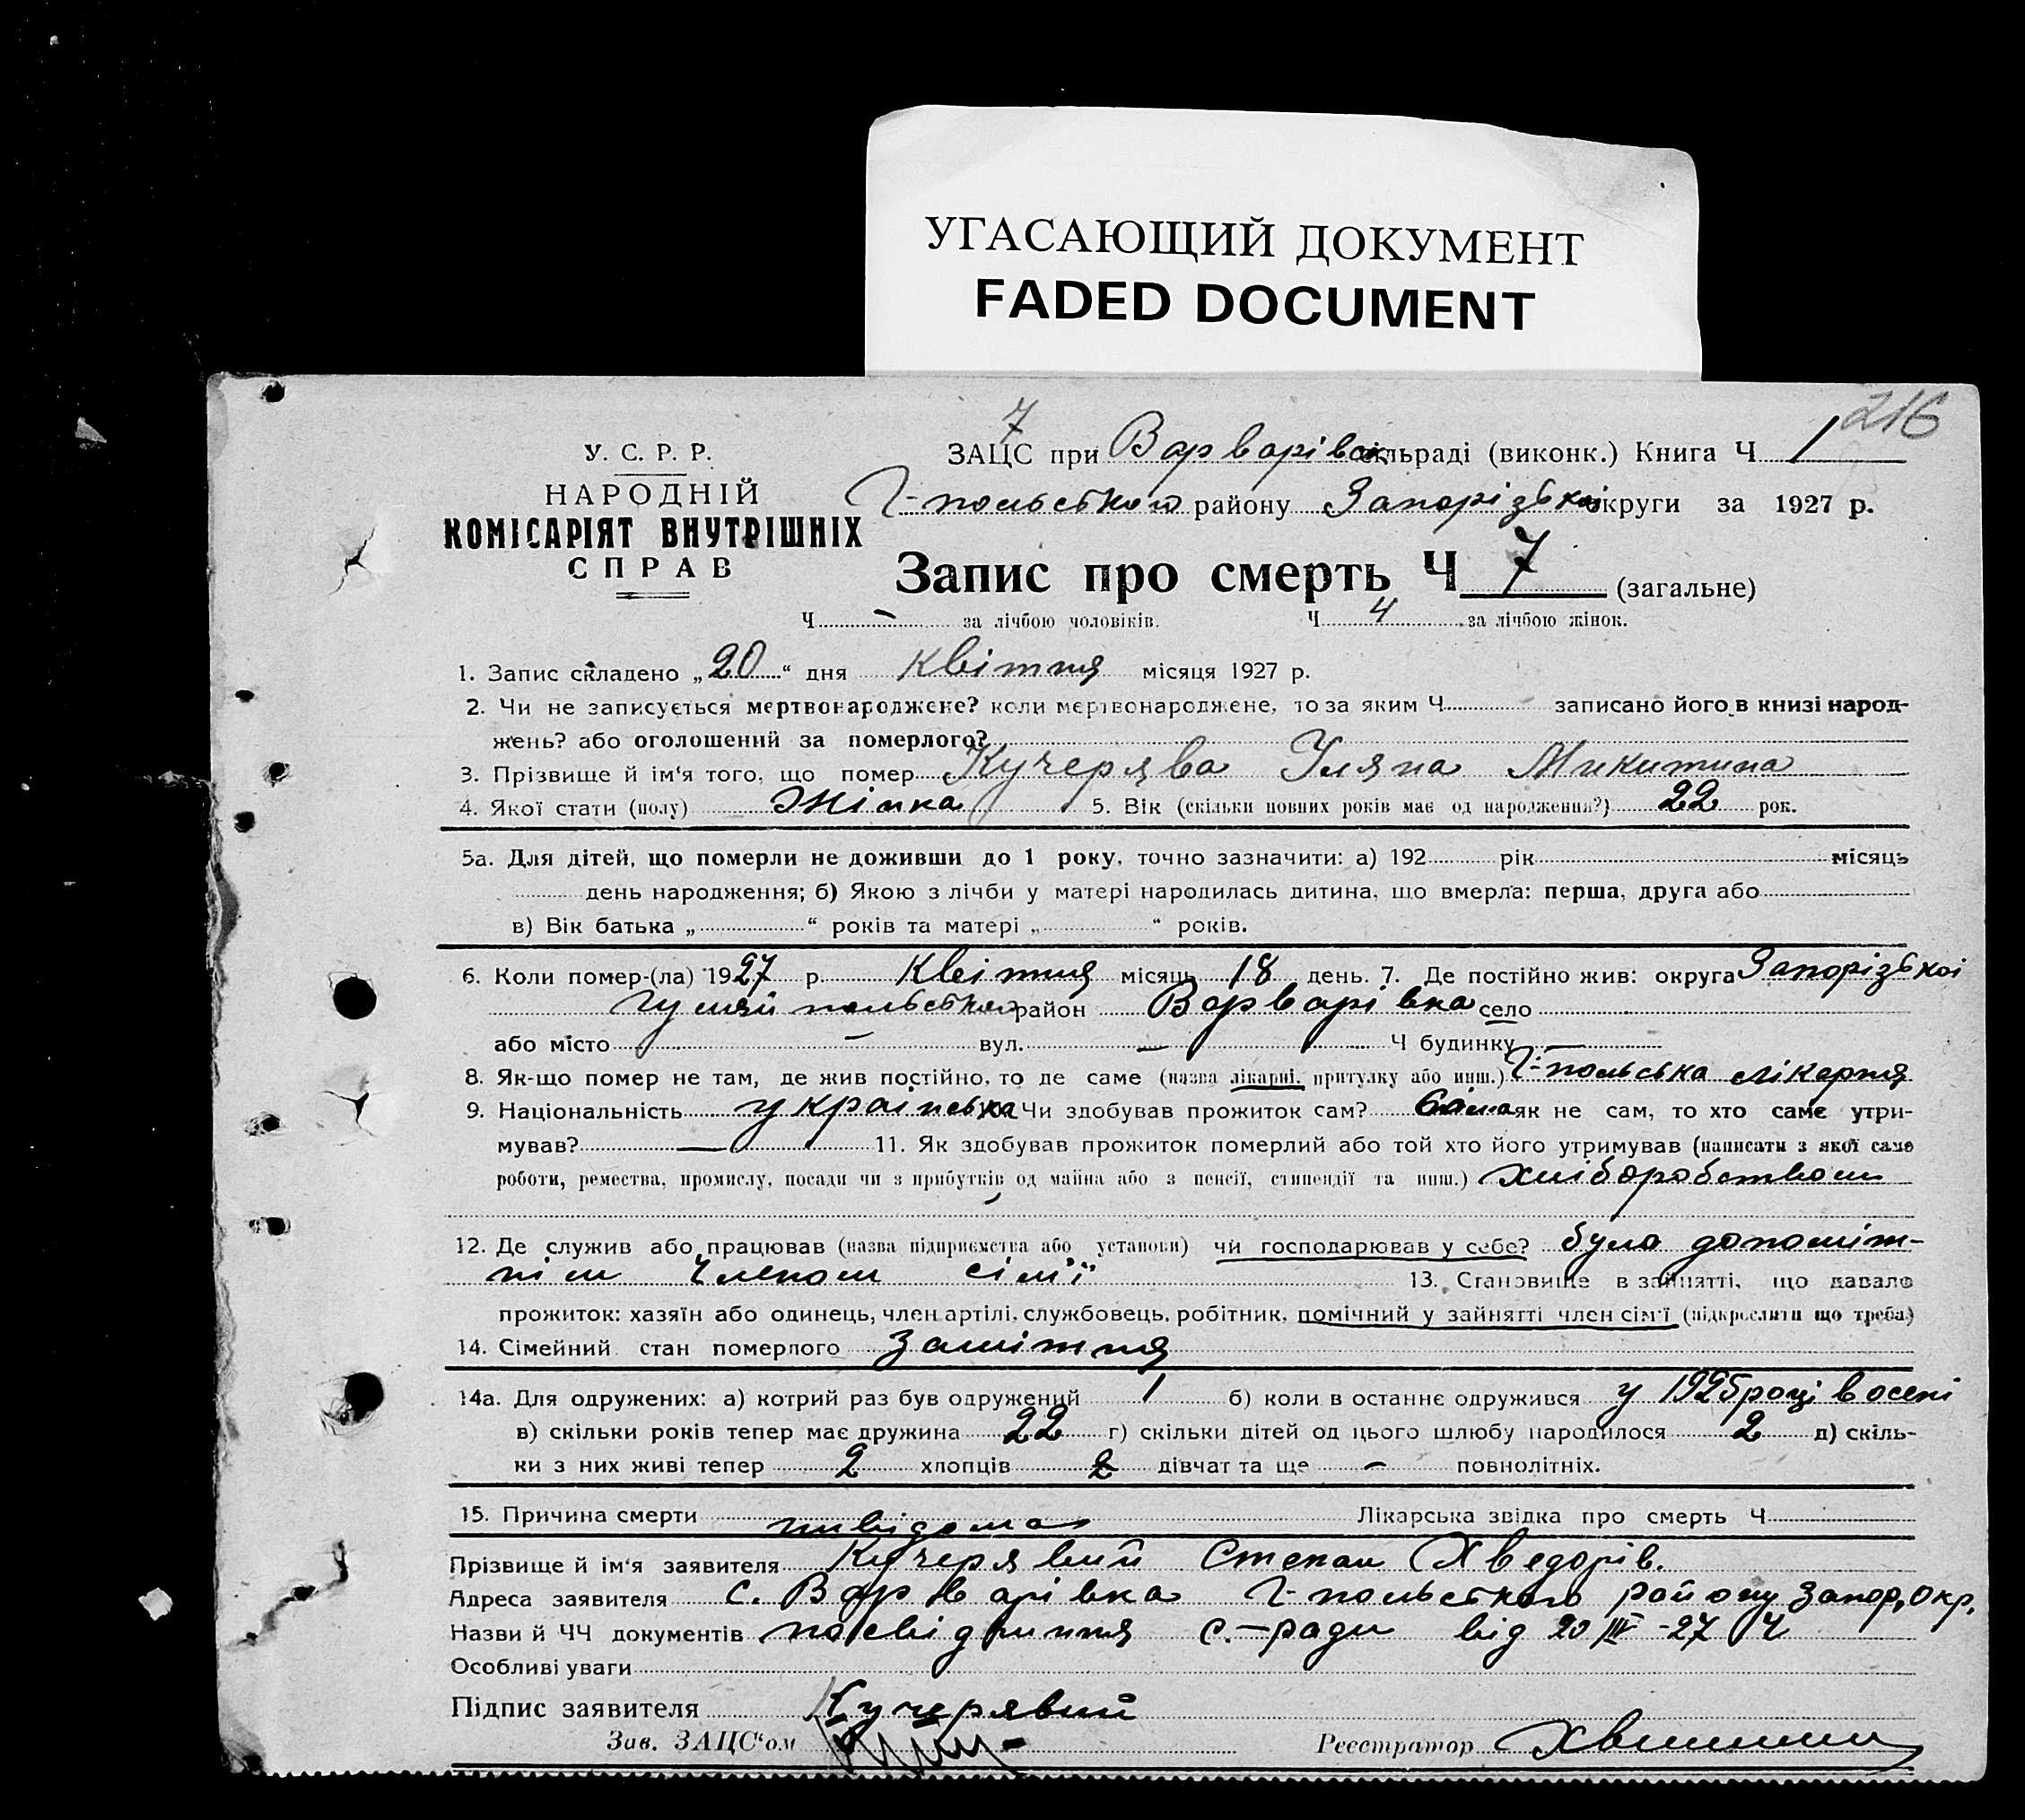 УГАСАЮЩИЙ ДОКУМЕНТ
FADED DOCUMENT
216
7
У. С. Р. Р.
НАРОДНІЙ
КОМІСАРІЯТ ВНУТРІШНІХ
СПРАВ
ЗАЦС при Варварівськ сільраді (виконк.) Книга Ч 1
Г-польського району Запорізької округи за 1927 р.
Запис про смерть Ч 7 (загальне)
Ч – за лічбою чоловіків. Ч 4 за лічбою жінок.
1. Запис складено „20“ дня квітня місяця 1927 р.
2. Чи не записується мертвонароджене? коли мертвонароджене, то за яким Ч записано його в книзі народ-
жень? або оголошений за померлого?
3. Прізвище й ім‘я того, що помер Кучерява Уляна Микитина
4. Якої стати (полу) Жінка 5. Вік (скільки повних років має од народження?) 22 рок.
5а. Для дітей, що померли не доживши до 1 року, точно зазначити: а) 192 рік місяць
день народження; б) Якою з лічби у матері народилась дитина, що вмерла: перша, друга або
в) Вік батька „ “ років та матері „ “ років.
6. Коли помер-(ла) 1927 р. квітня місяць 18 день. 7. Де постійно жив: округа Запорізької
Гуляйпольського район Варварівка село
або місто – вул. – Ч будинку –
8. Як-що помер не там, де жив постійно, то де саме (назва лікарні, притулку або инш.) Г-польська лікарня
9. Національність українська Чи здобував прожиток сам? сама як не сам, то хто саме утри-
мував? – 11. Як здобував прожиток померлий або той хто його утримував (написати з якої саме
роботи, ремества, промислу, посади чи з прибутків од майна або з пенсії, стипендії та инш.) хліборобством
12. Де служив або працював (назва підприємства або установи) чи господарював у себе? була допоміж-
нім членом сім'ї 13. Становище в зайнятті, що давало
прожиток: хазяїн або одинець, член артілі, службовець, робітник, помічний у зайнятті член сім‘ї (підкреслити що треба)
14. Сімейний стан померлого Заміжня
14а. Для одружених: а) котрий раз був одружений 1 б) коли в останнє одружився у 1925 році восени
в) скільки років тепер має дружина 22 г) скільки дітей од цього шлюбу народилося 2 д) скіль-
ки з них живі тепер 2 хлопців 2 дівчат та ще – повнолітніх.
15. Причина смерти нивідома Лікарська звідка про смерть Ч
Прізвище й ім‘я заявителя Кучерявий Степан Хведорів.
Адреса заявителя с. Варварівка Г-польского району Запор, окр.
Назви й ЧЧ документів посвідчиння с.-ради від 20/IV-27 Ч
Особливі уваги
Підпис заявителя Кучерявий
Зав. ЗАЦС‘ом
Реєстратор